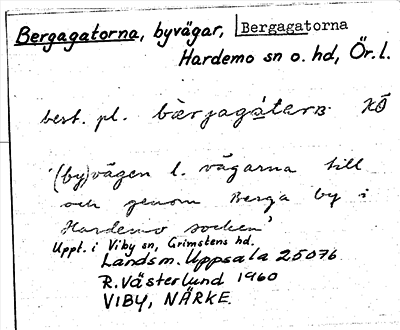 Bergagatorna, byvägar, Bergagatorna
Hardemo sn o. hd, Ör. l.
best. pl. bærjagátarɴ KÖ
'(by)vägen l. vägarna till
och genom Berga by i
Hardemo socken'
Uppt. i Viby sn, Grimstens hd,
Landsm. Uppsala 25076
R. Västerlund 1960
VIBY, NÄRKE.